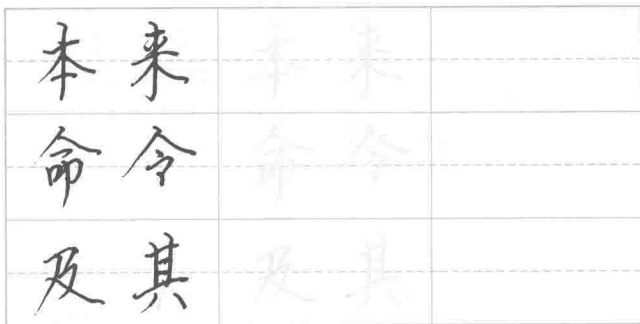 本来 本来
命令 命令
及其 及其